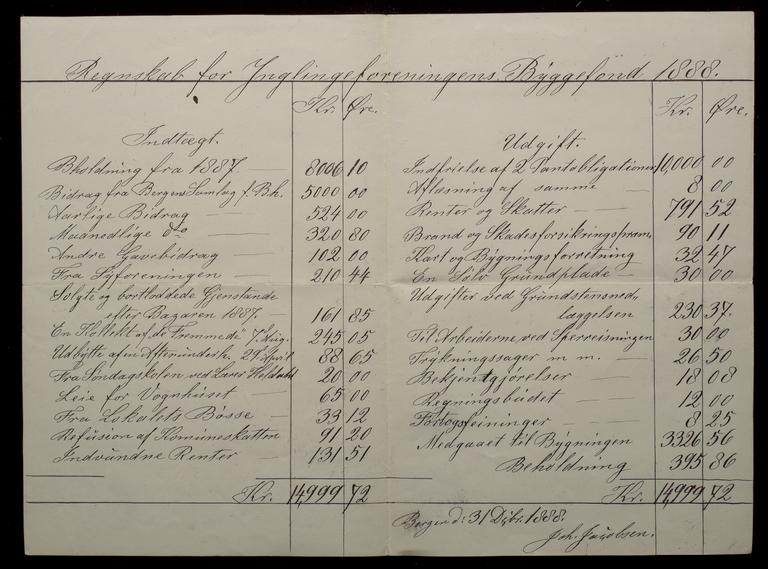 Regnskab for Ynglingeforeningens Byggefond 1888.
Kr. Øre.
Indtægt.
Bholdning fra 1887. 8006 10
Bidrag fra Bergens Samlag f. Bh. 5000 00
Aarlige Bidrag 524 00
Maanedlige do 320 80
Andre Gavebidrag 102 00
Fra Syforeningen 210 44
Solgte og bortloddede Gjenstande
efter Bazaren 1887. 161 85
En Kollekt af "de Fremmede" 7 Aug. 245 05
Udbytte af en Aftenunderh. 29 April 88 65
Fra Søndagskolen ved Lærer 20 00
Leie for Vognhuset 65 00
Fra Lokalets Bøsse 33 12
Refusion af Komuneskatten 91 20
Indvundne Renter 131 51
Kr. 14,999 72
Kr. Øre.
Udgift.
Indfrielse af 2 Pantobligationer 10,000 00
Aflæsning af samme 8 00
Renter og Skatter 791 52
Brand og Skadesforsikringspræm. 90 11
Kart og Bygningsforretning 32 47
En Sölv Grundplade 30 00
Udgifter ved Grundstensned-
læggelsen 230 37.
Til Arbeiderne ved Sperreisningen 30 00
Trykningssager m m. 26 50
Bekjentgjörelser 18 08
Regningsbudet 12 00
Fortogsfeininger 8 25
Medgaaet til Bygningen 3326 56
Beholdning 395 86
Kr. 14,999 72
Bergen d: 31 Dcbr. 1888.
Joh. Jacobsen.